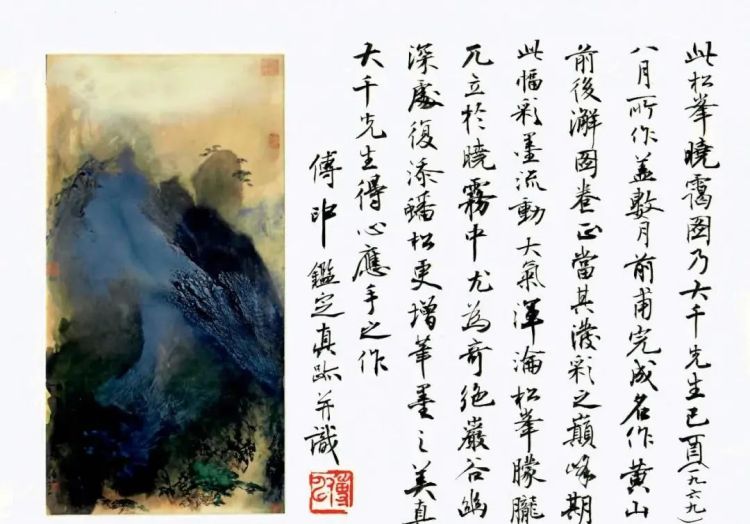 此松峯曉靄图乃大千先生己酉(一九六九)
八月所作蓋數月前甫完成名作黄山
前後澥图卷正當其潑彩之巔峰期
此幅彩墨流動大氣渾淪松峯朦朧
兀立於曉霧中尤為奇絶巖谷幽
深處復添蟠松更增筆墨之美真
大千先生得心應手之作
傅申鑑定真跡并識